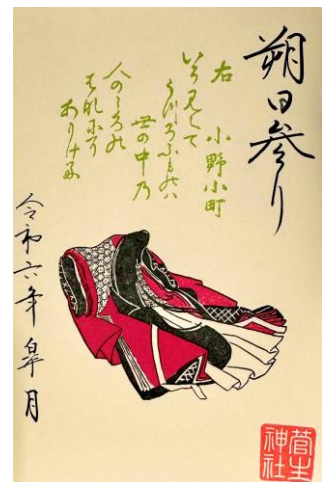 朔日参り
右 小野小町
いろみえて
うつろふものハ
世の中乃
人のこゝろの
はなにそ
ありける
令和六年皐月
菅生
神社